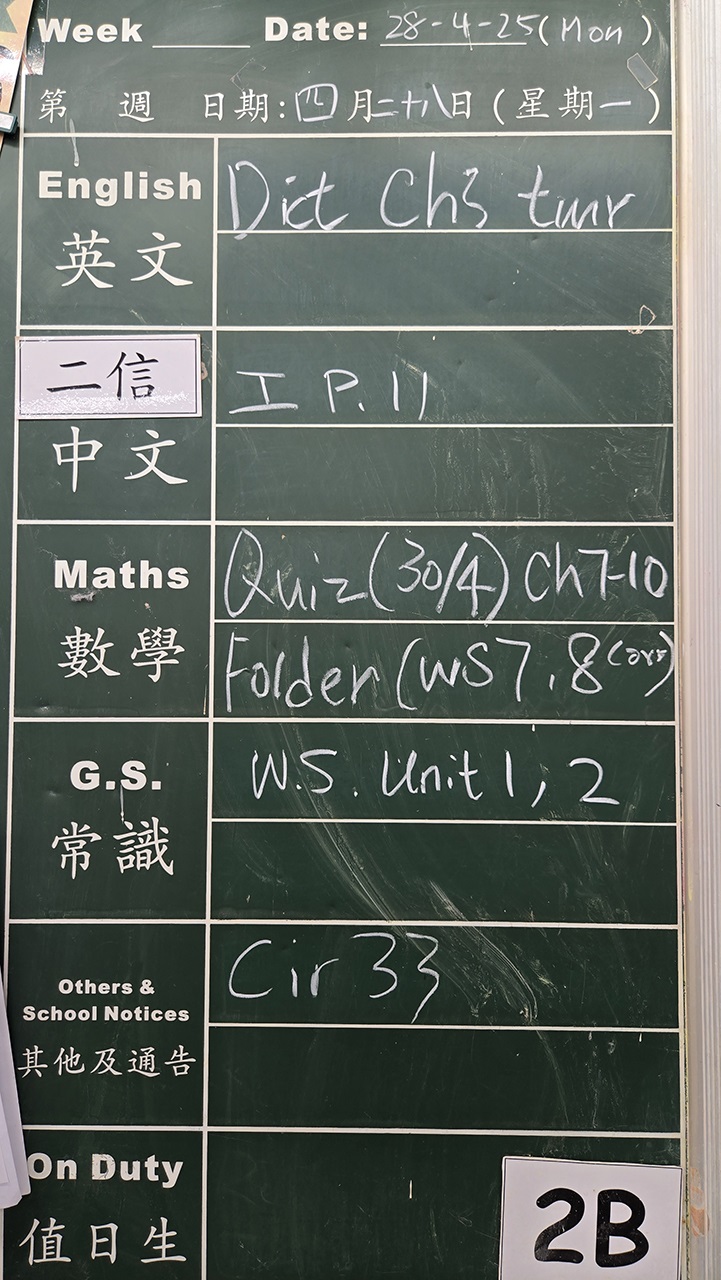 Week Date: 28-4-25 (Mon)
第 週 日期: 四月二十八日 (星期一)
English Dict Ch3 tmr
英文
二信 工 P.11
中文
Maths Quiz (30/4) Ch7-10
數學 Folder (WS7, 8
G.S. W.S. Unit 1, 2
常識
Others & Cir 33
School Notices
其他及通告
On Duty
值日生
2B